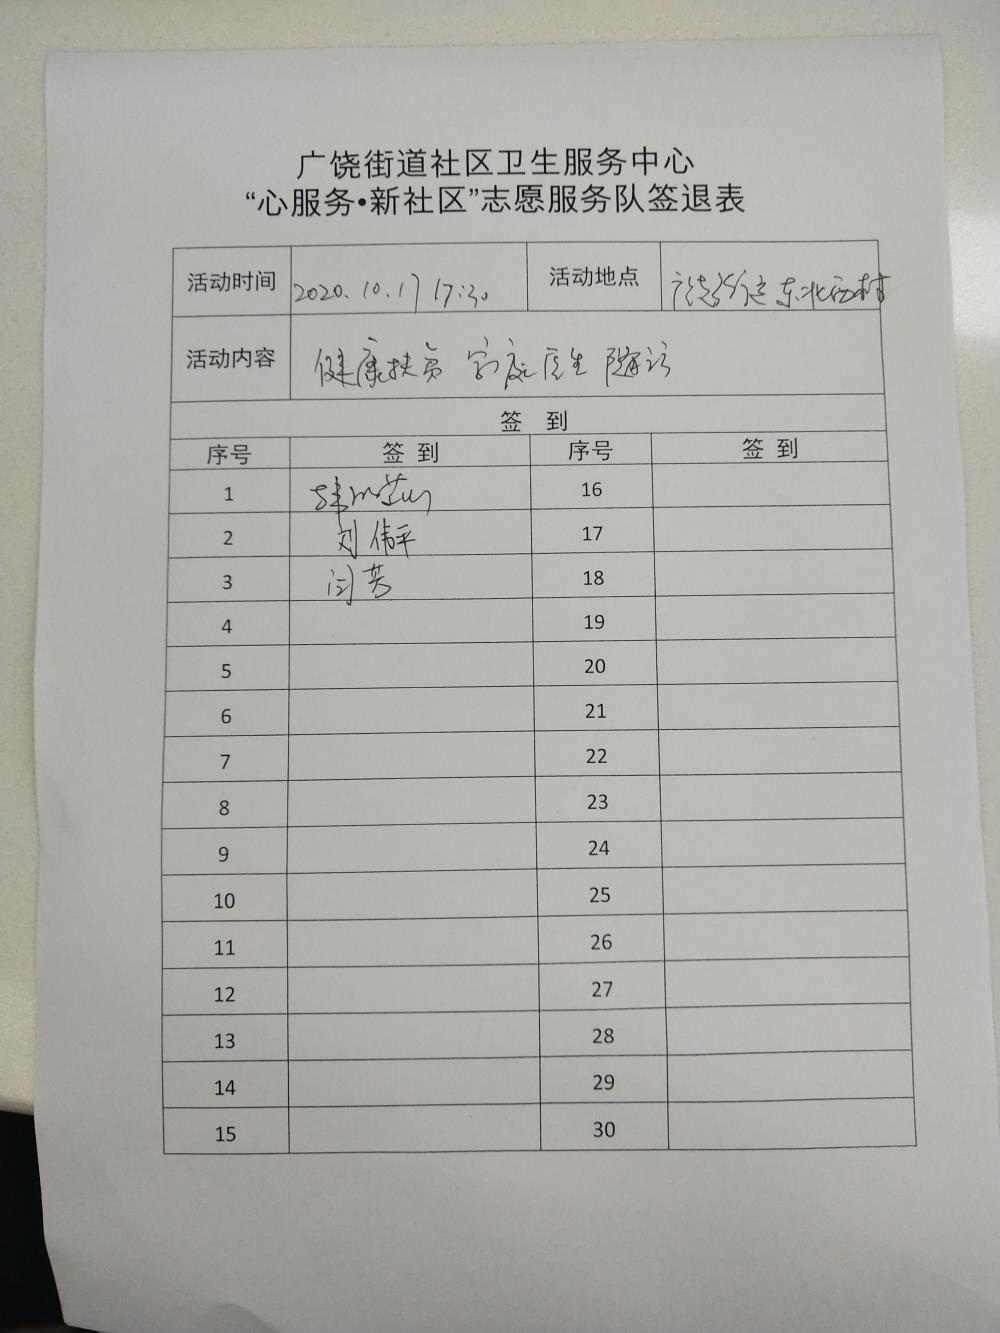 广饶街道社区卫生服务中心
“心服务•新社区”志愿服务队签退表
活动时间 2020.10.17 17:30 活动地点 广饶街道东北西村
活动内容 健康扶贫 家庭医生 随访
签 到
序号 签 到 序号 签 到
1 16
2 刘伟平 17
3 闫芳 18
4 19
5 20
6 21
7 22
8 23
9 24
10 25
11 26
12 27
13 28
14 29
15 30